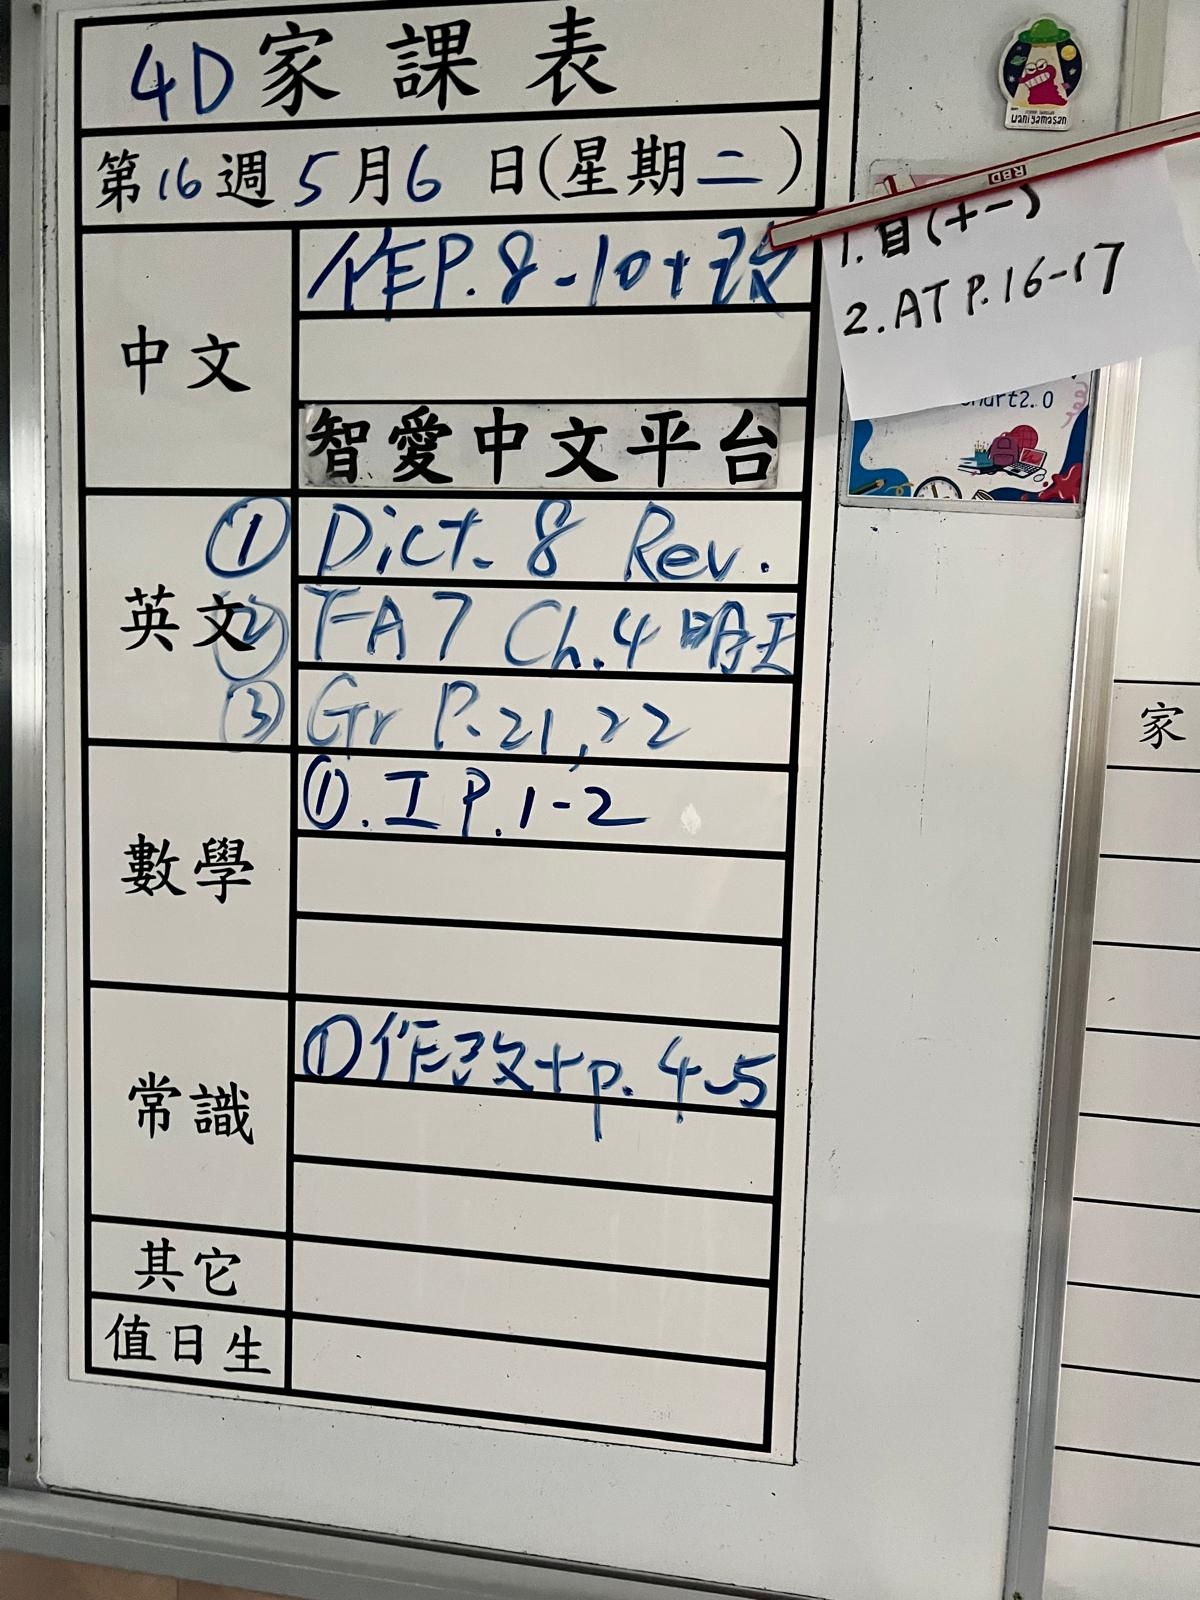 4D家課表
第16週5月6日(星期二)
中文
作P.8-10+改
智愛中文平台
英文
① Dict. 8 Rev.
② T-A 7 Ch.4 明天
③ Gr P.21,22
數學
①. 工 P.1-2
常識
①作改+p.4-5
其它
值日生
waniyamasan
RBD
1.自(十一)
2.AT P.16-17
2.0
家